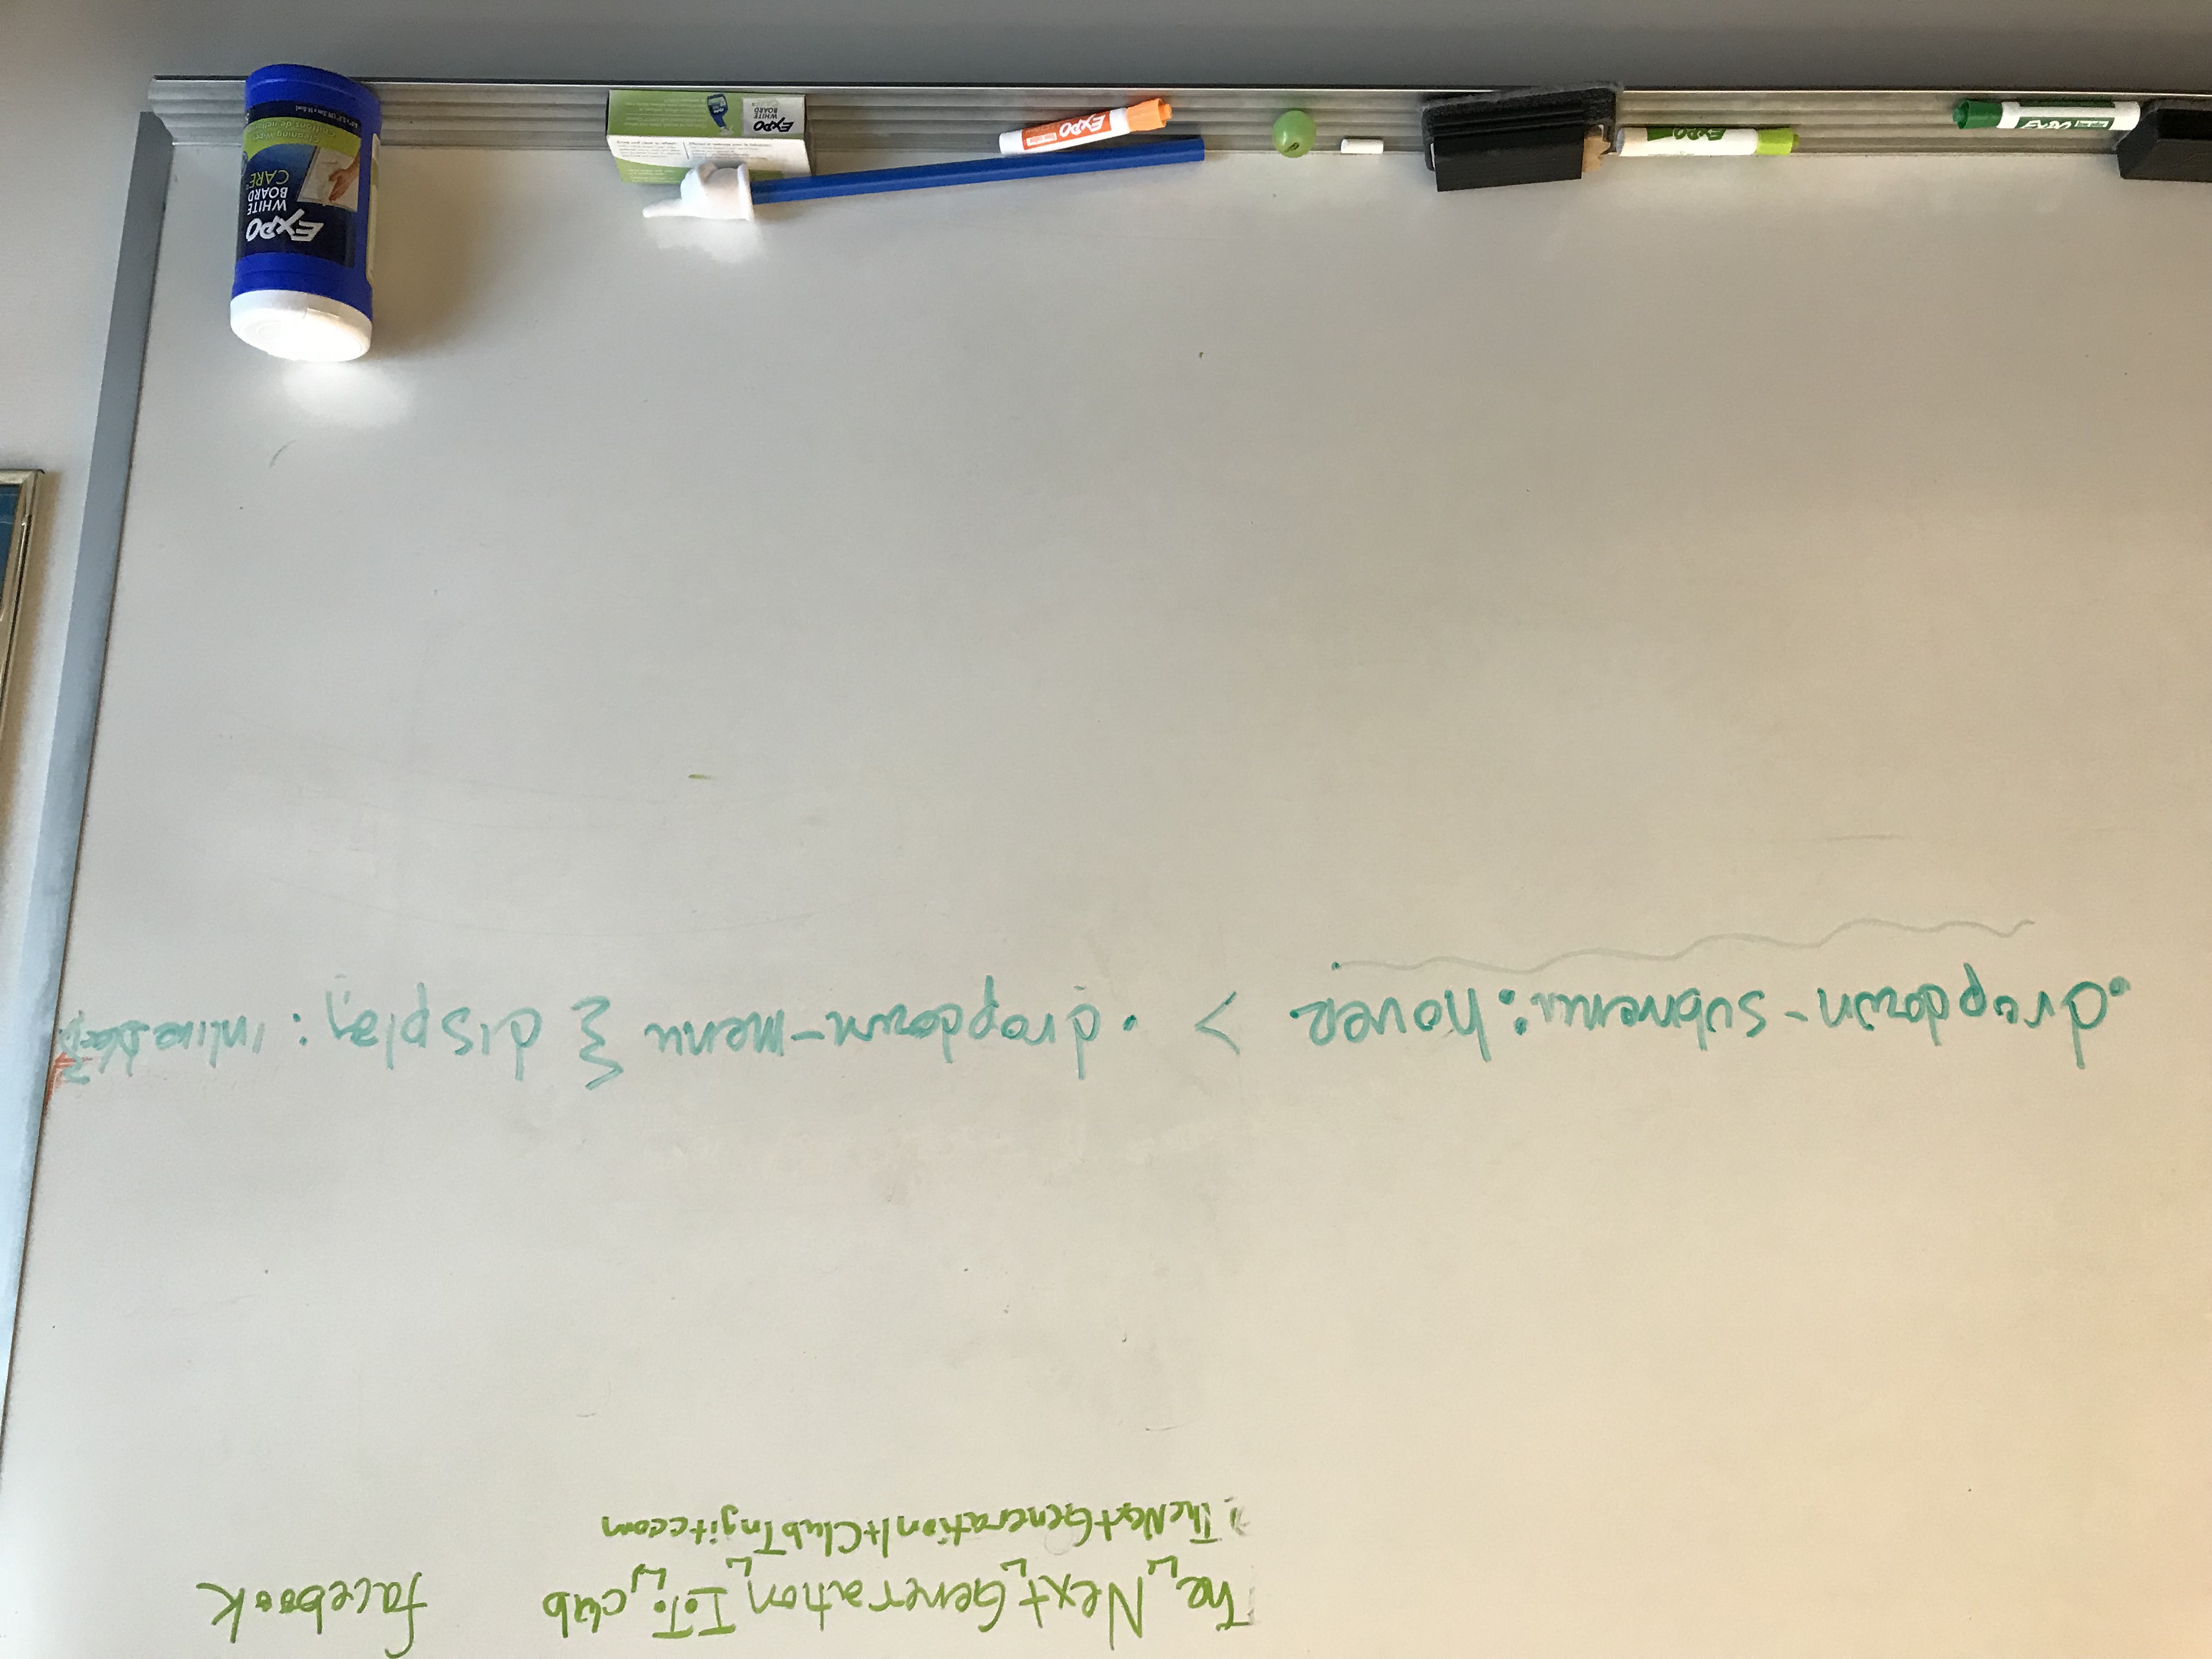 The Next Generation I.T. club facebook
TheNextGenerationItClubTngitccom
.dropdown-submenu:hover > .dropdown-menu { display: inline block }
EXPO
EXPO
EXPO
EXPO
WHITE
BOARD
CARE
EXPO
WHITE
BOARD
CARE
Cleaning Wipes